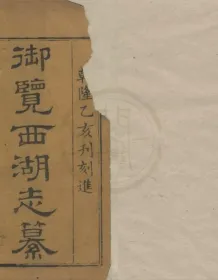 乾隆乙亥刊刻進
御覽西湖志纂